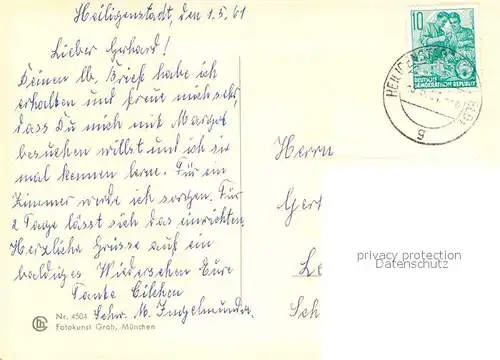 Heiligenstadt, den 1.5.61
Lieber Gerhard!
Deinen lb. Brief habe ich
erhalten und freue mich sehr,
dass Du mich mit Margot
besuchen willst und ich sie
mal kennen lerne. Für ein
Zimmer werde ich sorgen. Für
2 Tage lässt sich das einrichten.
Herzliche Grüsse auf ein
baldiges Wiedersehen Eure
Tante
Schw. M. Ingelmunda.
Nr. 4504
Fotokunst Groh, München
10
DEUTSCHE
DEMOKRATISCHE REPUBLIK
HEILIGENST
g
Herrn
Ger
Le
Sch
privacy protection
Datenschutz